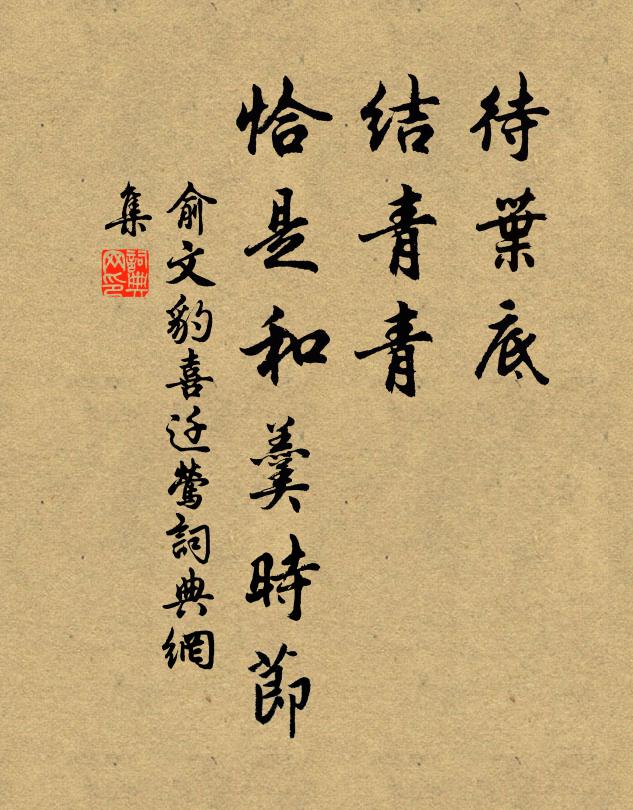 待葉底
結青青
恰是和羹時節
俞文豹喜迁鶯詞典網
集
詞典網印